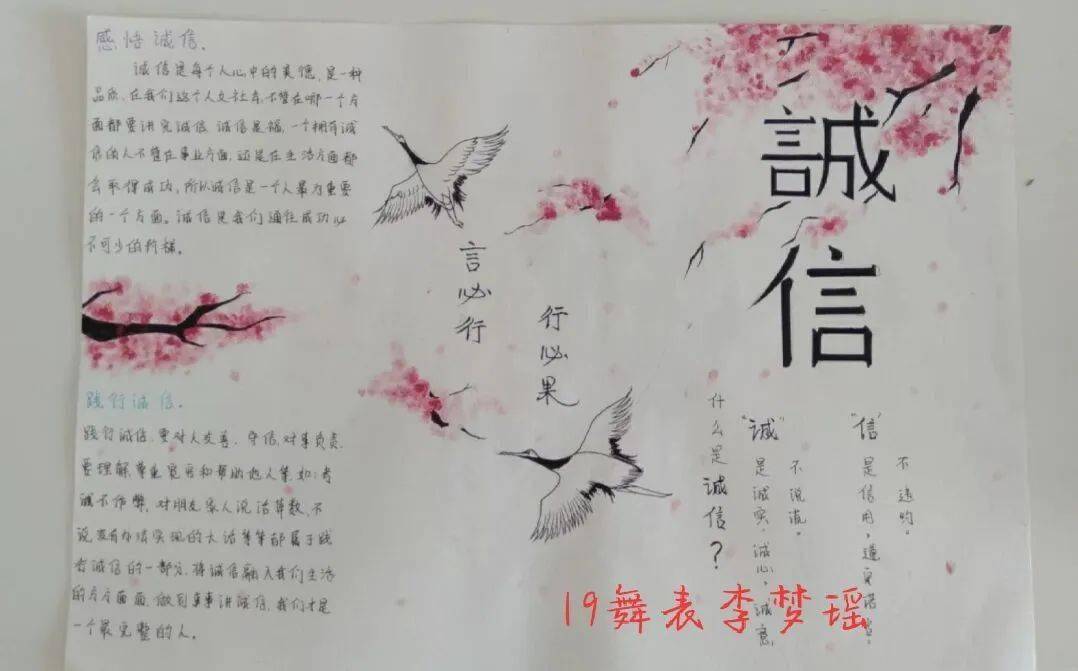 感悟诚信.
诚信是每个人心中的美德,是一种
品质,在我们这个人文社会,不管在哪一个方
面都要讲究诚信,诚信是福,一个拥有诚
信的人不管在事业方面,还是在生活方面都
会取得成功,所以诚信是一个人最为重要
的一个方面。诚信是我们通往成功必
不可少的阶梯。
言必行
行必果
誠
信
践行诚信.
践行诚信,要对人友善,守信,对事负责,
要理解、尊重、宽容和帮助他人等,如:考
试不作弊,对朋友家人说话算数,不
说没有办法实现的大话等等都属于践
行诚信的一部分,将诚信融入我们生活
的方方面面,做到真事讲诚信,我们才是
一个最完整的人。
什么是诚信?
"诚"是诚实,诚心,诚意,
不说谎。
"信"是信用,遵守诺言,
不违约。
19舞表李梦瑶